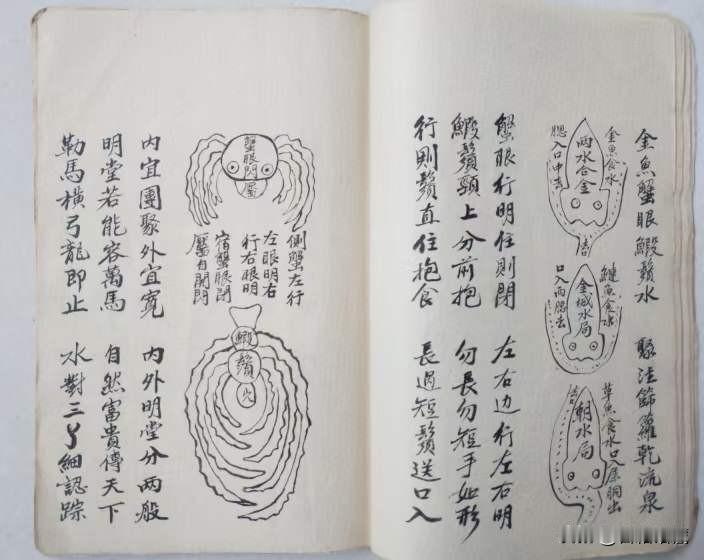 金魚蟹眼鰕鬚水 聚注節蘿乾流泉
金魚食水
腮入口中去
兩水合金
鰱魚食水
口入兩腮出
金城水局
草魚食水口入尾洞出
朝水局
蟹眼行明住則閉 左右边行左右明
鰕鬚頸上分前抱 勿長勿短手如形
行則鬚直住抱食 長過短鬚送口入
蟹眼閉屬
側蟹左行
左眼明右
行右眼明
宿蟹眼閉
屬自開閉
鰕
鬚
穴
內宜團聚外宜寬 內外明堂分兩般
明堂若能容萬馬 自然富貴傳天下
勒馬橫弓龍即止 水對三丫細認踪